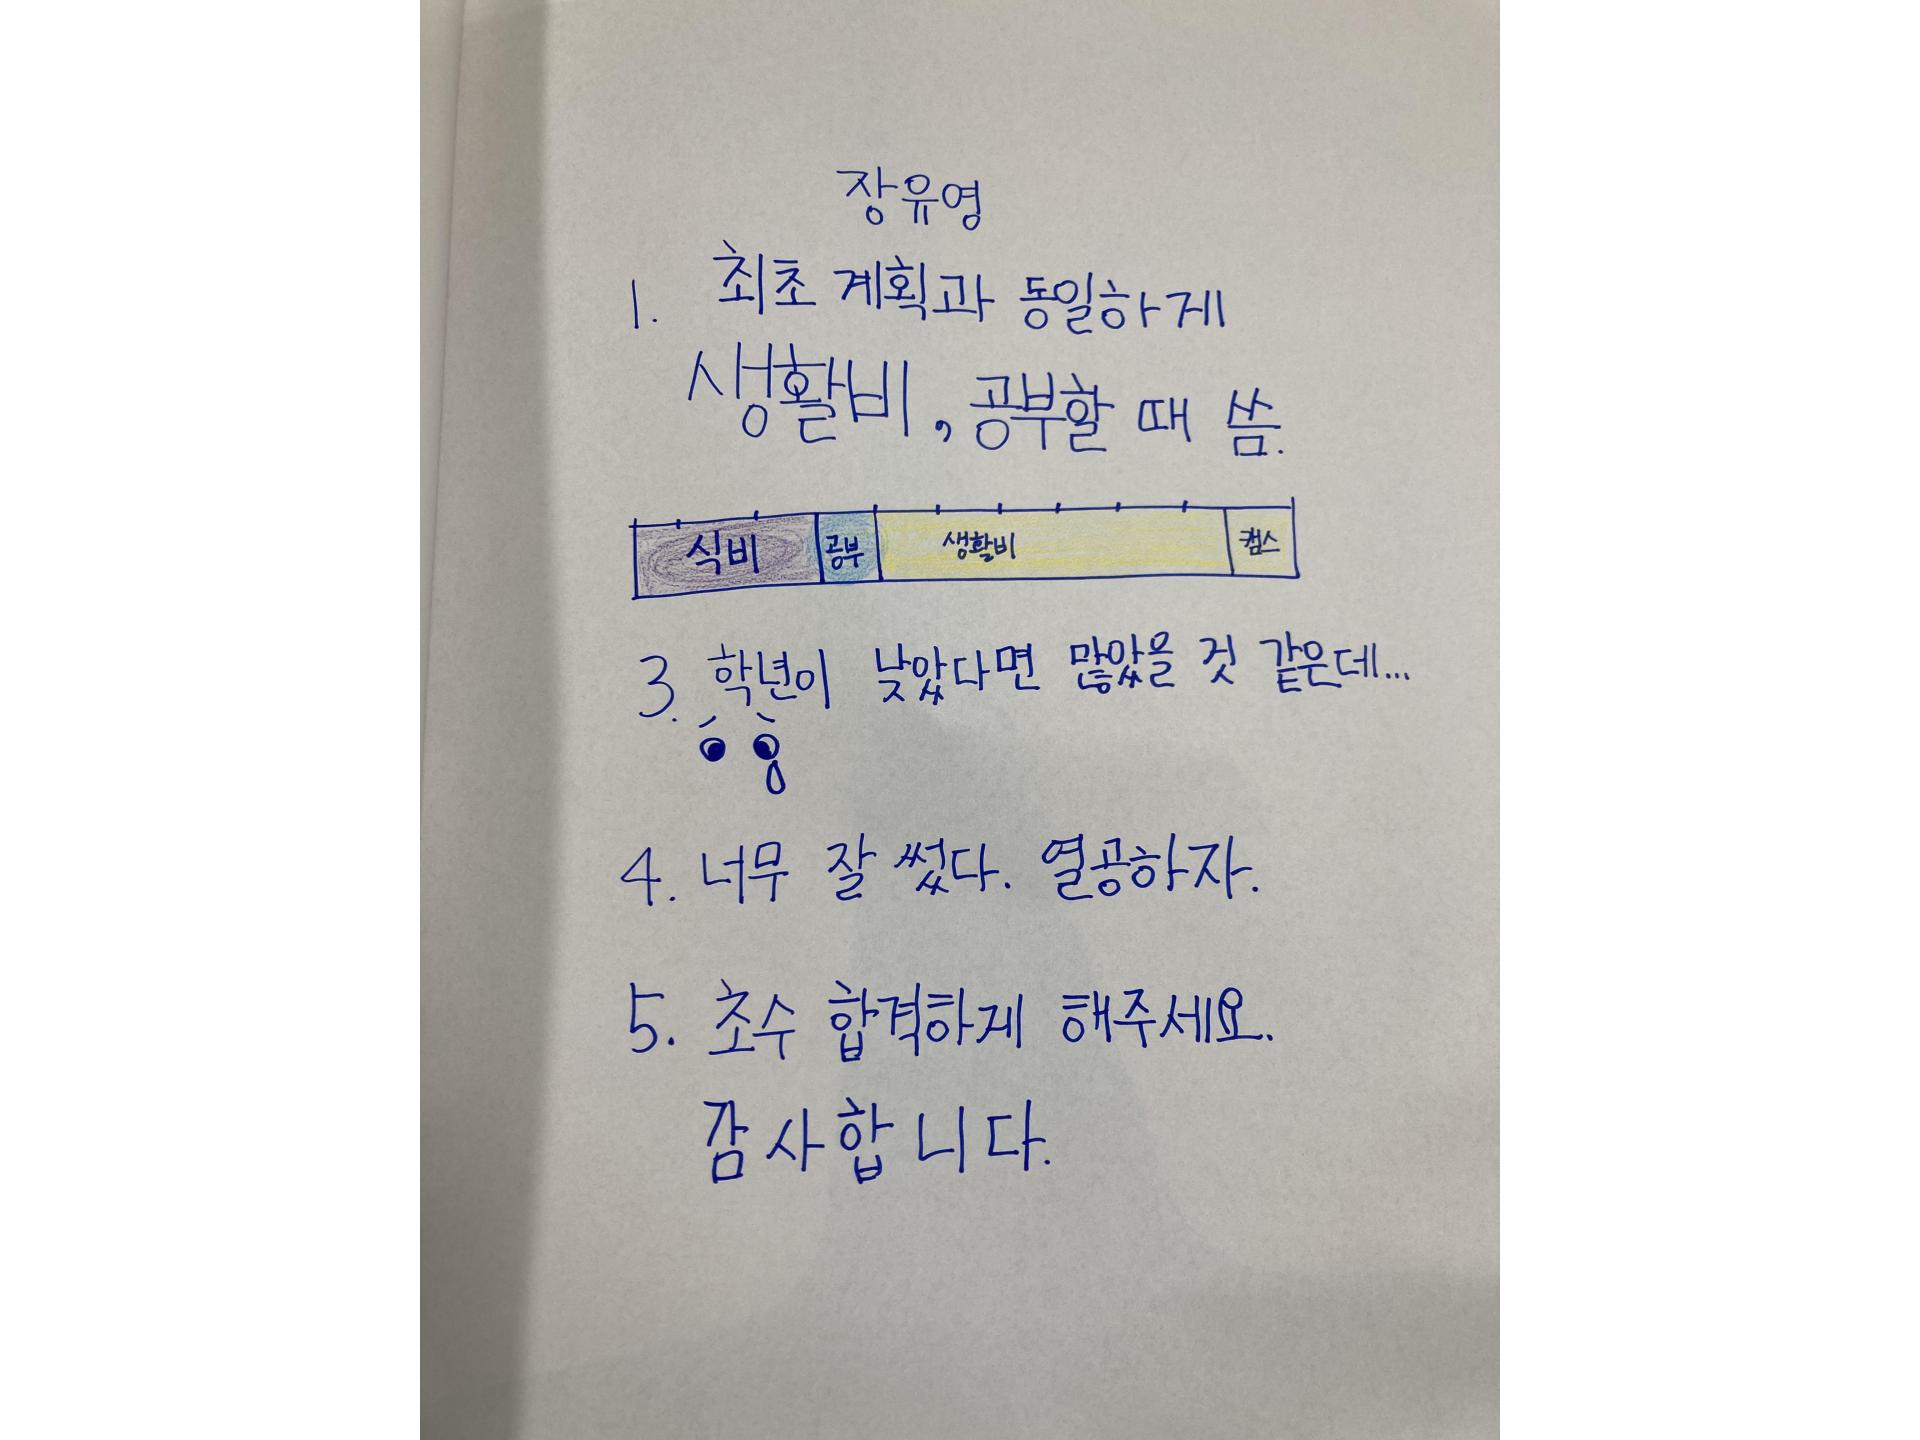 장유영
1. 최초 계획과 동일하게
생활비, 공부할 때 씀.
식비 공부 생활비 컴스
3. 학년이 낮았다면 많았을 것 같은데...
4. 너무 잘 썼다. 열공하자.
5. 초수 합격하게 해주세요.
감사합니다.